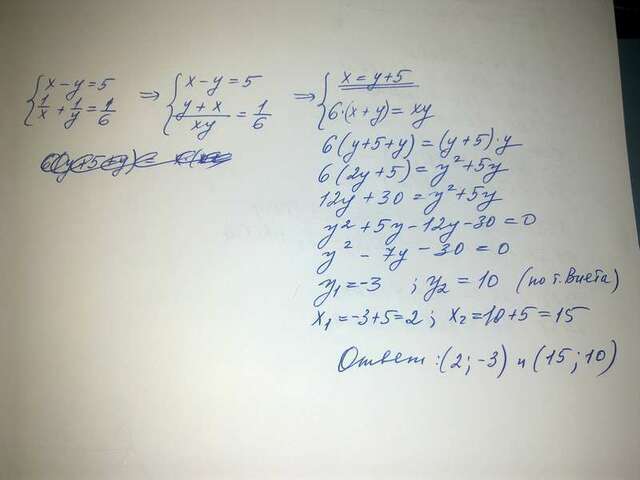 { x - y = 5 => { x - y = 5 => { x = y + 5
1/x + 1/y = 1/6 (y + x)/xy = 1/6 6·(x + y) = xy
6(y + 5 + y) = (y + 5)·y
6(2y + 5) = y² + 5y
12y + 30 = y² + 5y
y² + 5y - 12y - 30 = 0
y² - 7y - 30 = 0
y₁ = -3 ; y₂ = 10 (по т. Виета)
x₁ = -3 + 5 = 2 ; x₂ = 10 + 5 = 15
Ответ : (2 ; -3) и (15 ; 10)